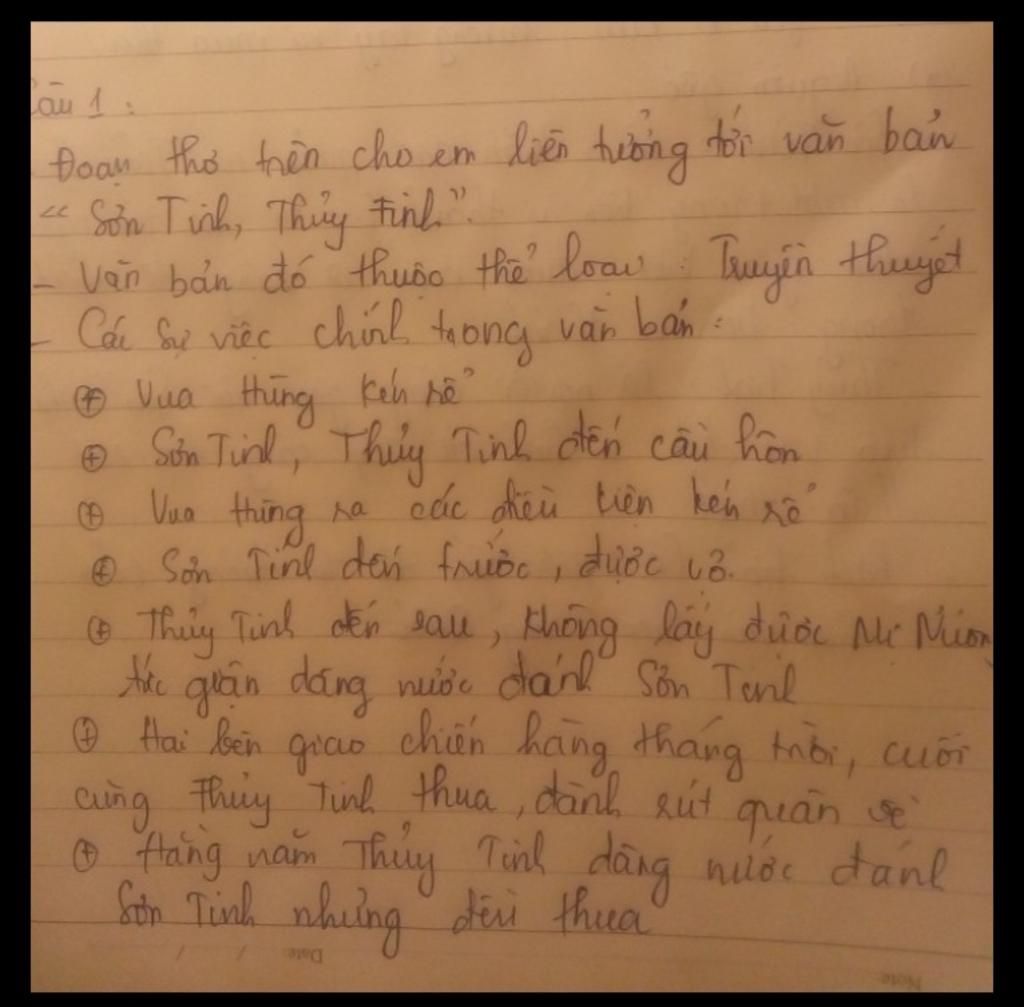 Câu 1 :
Đoạn thơ trên cho em liên tưởng tới văn bản
“ Sơn Tinh, Thủy Tinh”.
- Văn bản đó thuộc thể loại : Truyện thuyết
- Các sự việc chính trong văn bản :
⊕ Vua Hùng kén rể
⊕ Sơn Tinh, Thủy Tinh đến cầu hôn
⊕ Vua Hùng ra các điều kiện kén rể
⊕ Sơn Tinh đến trước, được vợ.
⊕ Thủy Tinh đến sau, không lấy được Mị Nương
tức giận dâng nước đánh Sơn Tinh
⊕ Hai bên giao chiến hàng tháng trời, cuối
cùng Thủy Tinh thua, đành rút quân về
⊕ Hằng năm Thủy Tinh dâng nước đánh
Sơn Tinh nhưng đều thua
Date / /
Note